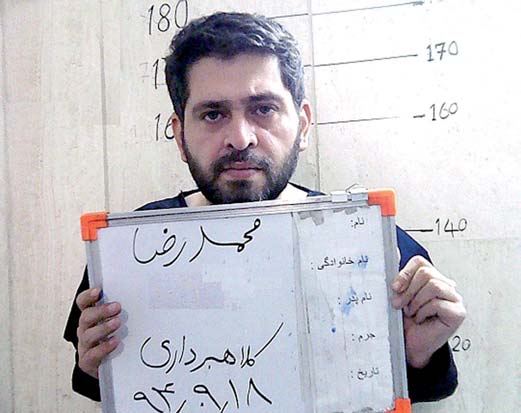 180
170
160
140
نام:
محمدرضا
نام خانوادگی:
نام پدر:
جرم:
کلاهبرداری
تاریخ:
۹۴٫۹٫۱۸